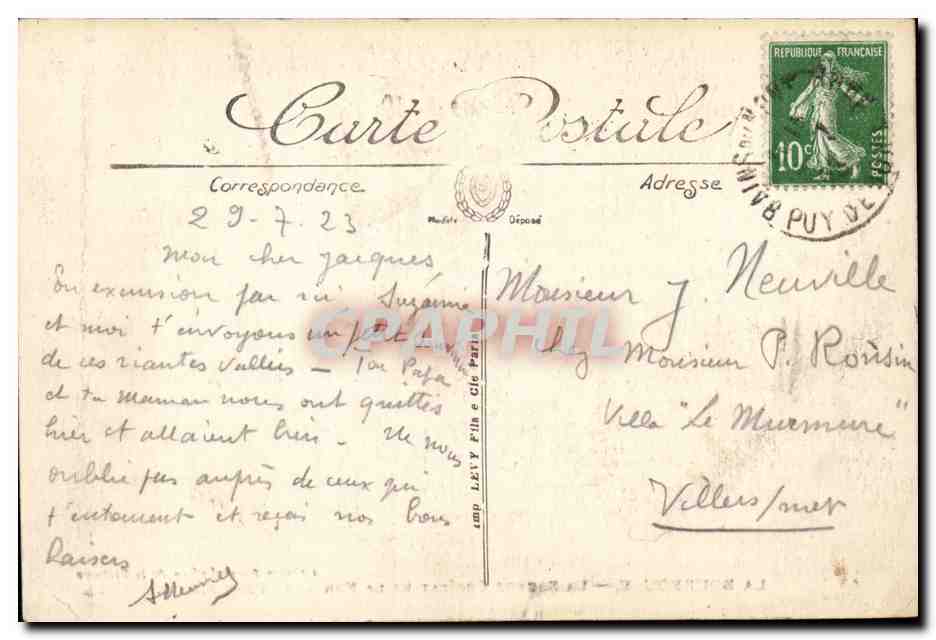 Carte Postale
Correspondance
Adresse
Modèle Déposé
REPUBLIQUE FRANÇAISE
10c POSTES
PUY DE
29-7-23
Mon cher Jacques
En excursion par ici Suzanne
et moi t'envoyons un petit
de ces riantes Vallées - Ton Papa
et ta maman nous ont quittés
hier et allaient bien - Ne nous
oublie pas auprès de ceux qui
t'entourent et reçois nos bons
baisers
Monsieur J. Neuville
chez Monsieur P. Rousin
Villa "Le Murmure"
Villers/mer
Imp LEVY Fils e Cie Paris
CPAPHIL